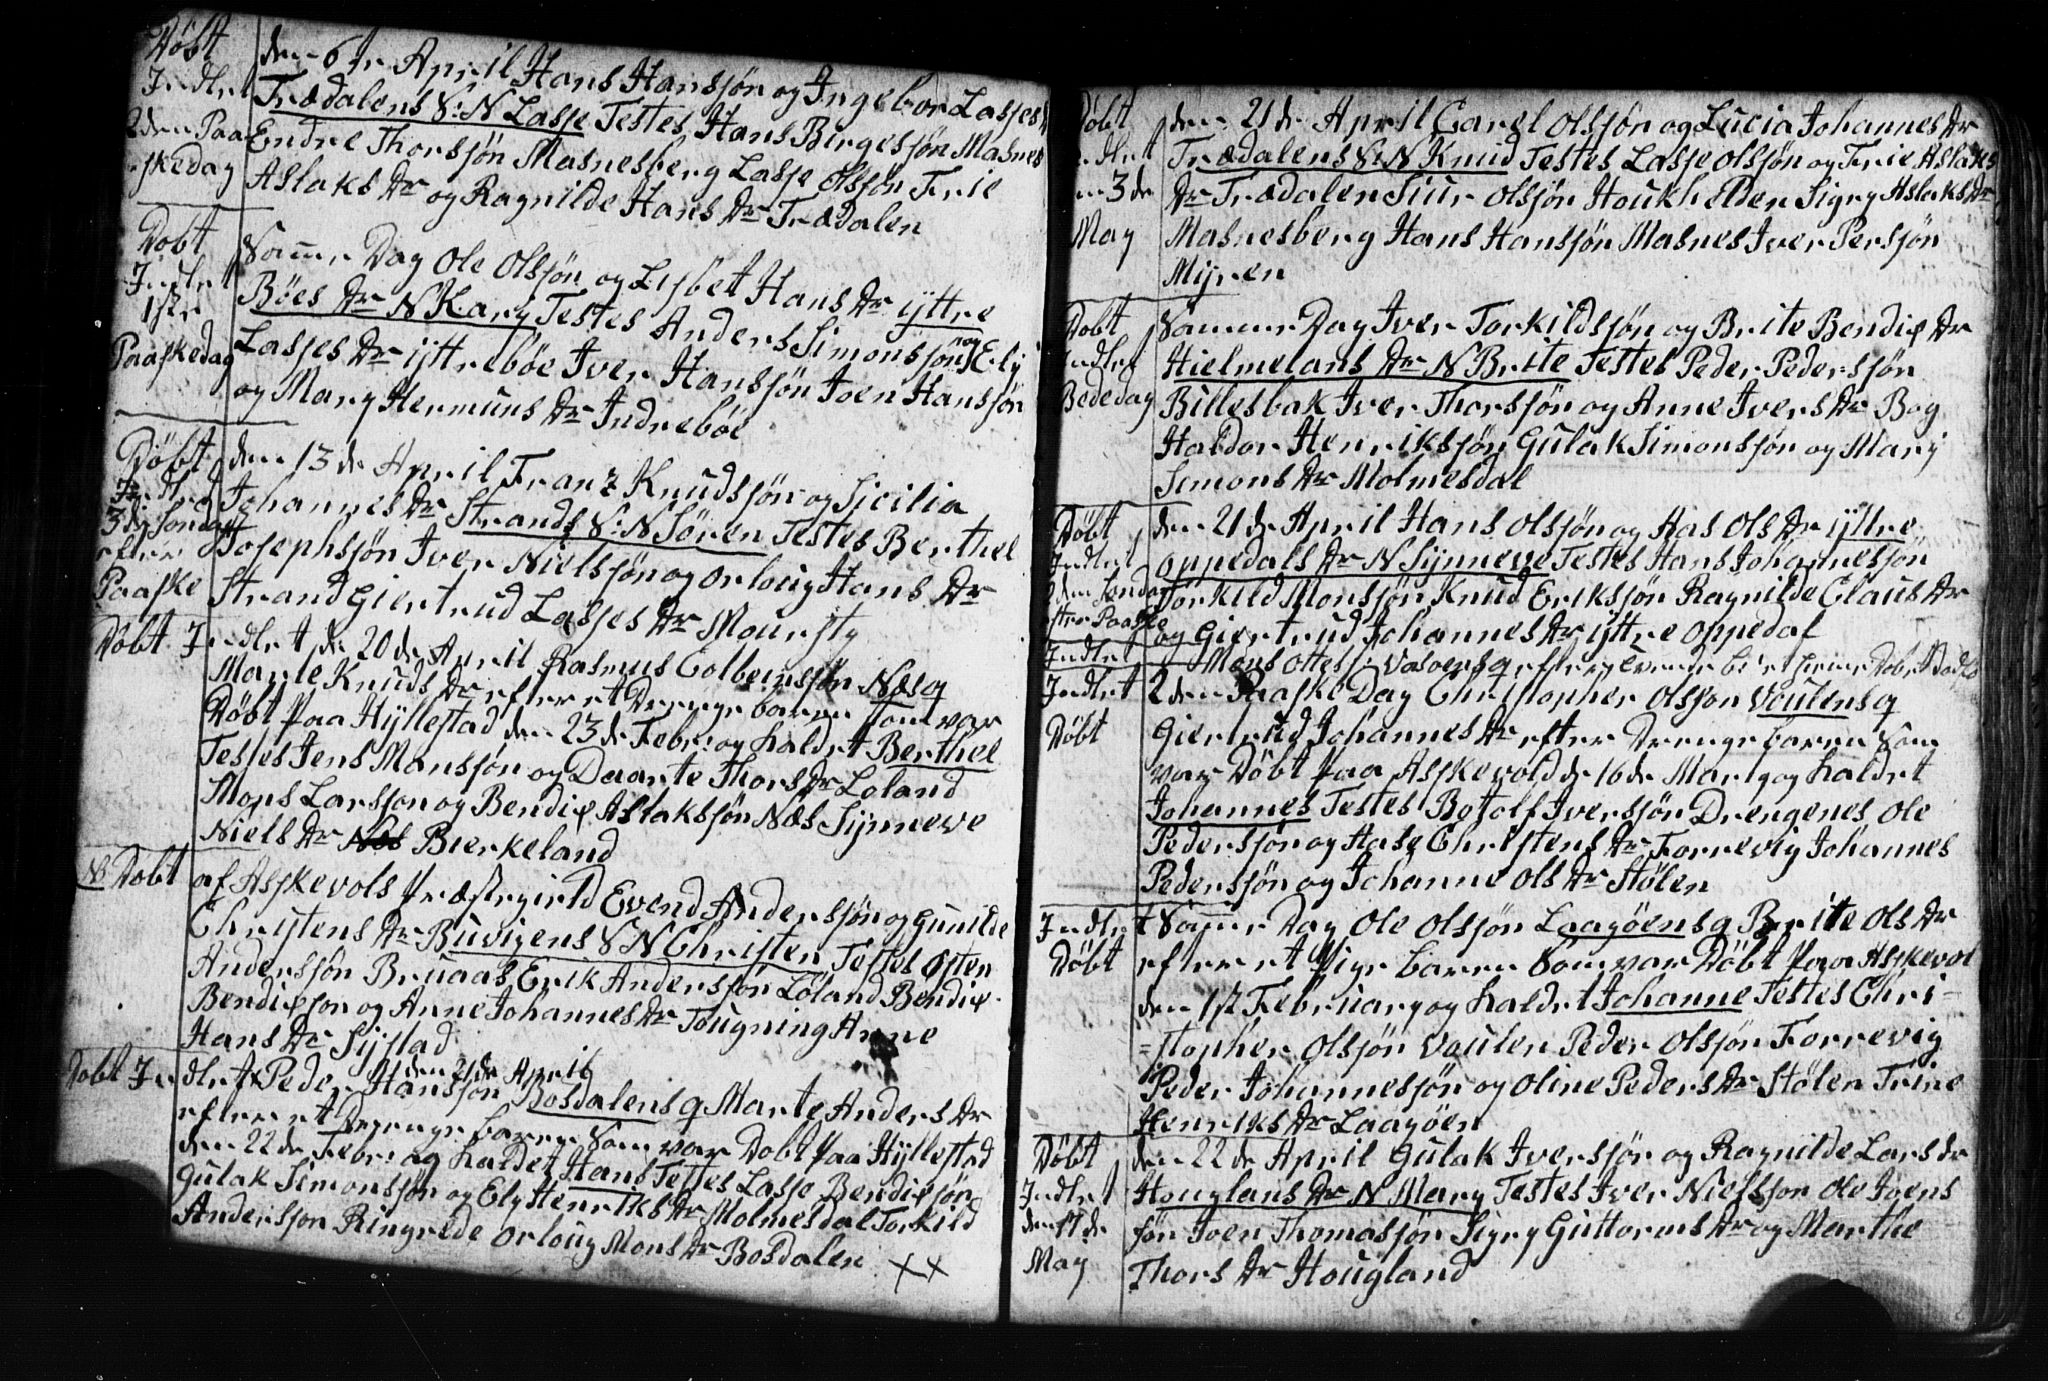 Döbt
Indlet
2den Paa
skedag
den 6te April Hans Hanssjøn og Ingebor Lasses
Trædalens S: N Lasse Testes Hans Bergesjøn Masnes
Endre Thorssjøn Masnesberg Lasse Olssjøn Frie
Aslaks Dr og Ragnilde Hans Dr Trædalen
Døbt
Indlet
1ste
Paaskedag
Samme Dag Ole Olssjøn og Lisbet Hans Dr ÿttre
Böes Dr N Kary Testes Anders Simonssjøn og Ely
Lasses Dr ÿttrebøe Iver Hanssjøn Joen Hanssjøn
og Mary Hermuns Dr Indrebøe
Döbt
Indled
3die Søndag
efter
Paaske
den 13de April Franz Knudssjøn og Sicilia
Johannes Dr Strands S: N Sören Testes Berthel
Josephsjøn Iver Nielssjøn og Orloug Hans Dr
Strand Giertrud Lasses Dr Moursty
Döbt Indlet de 20de April Rasmus Colbeinssjøn Næs og
Marte Knuds Dr efter et Drenge baren som var
Døbt Paa Hÿllestad den 23de Febr: og kaldet Berthel
Testes Jens Monssjøn og Daarte Thors Dr Loland
Mons Larssjon og Bendix Aslakssjøn Næs Sÿnneve
Niels Dr Bierkeland
NB Döbt af Askevols Præstegield Evend Anderssjøn og Gunilde
Christens Dr Buvigens S N Christen Testes Østen
Anderssjøn Bruaas Erik Anderssjøn Løland Bendix
Bendixsjon og Anne Johannes Dr Tougning Anne
Hans Dr Sÿstad
den 21de April
Döbt Indlet Peder Hanssjøn Bosdalens og Marte Anders Dr
efter et Drenge baren Som var Døbt Paa Hÿllestad
den 22de Febr: og kaldet Hans Testes Lasse Bendixsjøn
Gulak Simonssjøn og Ely Henriks Dr Molmesdal Torkild
Anderssjon Ringrede Orloug Mons Dr Bosdalen XX
Døbt
Indlet
den 3de
May
den 21de April Carel Olssjøn og Lucia Johannes Dr
Trædalens S: N Knud Testes Lasse Olssjøn og Frie Aslaks
Dr Trædalen Siur Olssjøn Houkhelder Sigry Aslaks Dr
Masnesberg Hans Hanssjøn Masnes Iver Perssjøn
Mijren
Døbt
Indlet
Bededag
Samme Dag Iver Torkildssjøn og Brite Bendix Dr
Hielmelans Dr N Brite Testes Peder Pederssjøn
Billesbak Iver Thorssjøn og Anne Ivers Dr Bog
Haldor Henrikssjøn Gulak Simonssjøn og Mary
Simons Dr Molmesdal
Døbt
Indlet
2den Sondag
efter Paaske
den 21de April Hans Olssjøn og Has Ols Dr ÿttre
Oppedals Dr N Sÿnneve Testes Hans Johannessjon
Torkild Monssjøn Knud Erikssjøn Ragnilde Claus Dr
og Giertrud Johannes Dr ÿttre Oppedal
Indlet Mons Ottes
Indlet
Døbt
2den Paaske Dag Christopher Olssjon Voulens og
Giertrud Johannes Dr efter Drenge baren Som
var Døbt Paa Askevold de 16de Marty og kaldet
Johannes Testes Botolf Iverssjøn Drengenes Ole
Pederssjøn og Hase Christens Dr Forrevig Johannes
Pederssjøn og Johanne Ols Dr Stølen
Indlet
Døbt
Samme Dag Ole Olssjön Laagöens og Brite Ols Dr
efter et Pige baren Som var Døbt Paa Askevol
den 1st Februar og kaldet Johanne Testes Chri=
=stopher Olssjön Voulen Peder Olssjön Forrevig
Peder Johannessjøn og Oline Peders Dr Stølen Trine
Henriks Dr Laagøen
Døbt
Indlet
den 17de
May
den 22de April Gulak Iverssjøn og Ragnilde Lars dr
Houglans Dr N Mary Testes Iver Nielssjon Ole Joens
sjön Joen Thomassjøn Sigry Guttorms Dr og Marthe
Thors Dr Hougland